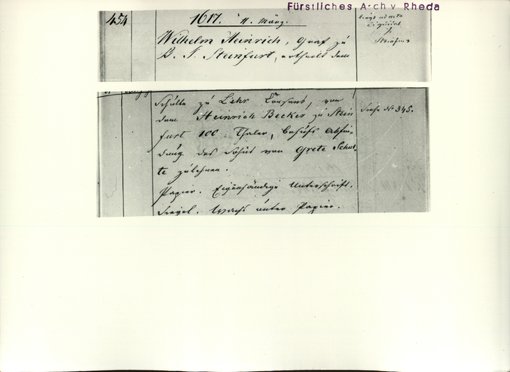 Fürstliches Archiv Rheda
454
1617. 11. März.
Wilhelm Heinrich, Graf zu
B. T. Steinfurt, ertheilt dem
Schulte zu Lehr Consens, von
dem Heinrich Becker zu Stein
furt 100 Thaler, behufs Abfin
dung des von Grete Schul
te zu leihen.
Papier. Eigenhändige Unterschrift.
Siegel. Wachs unter Papier.
Siehe No 345.